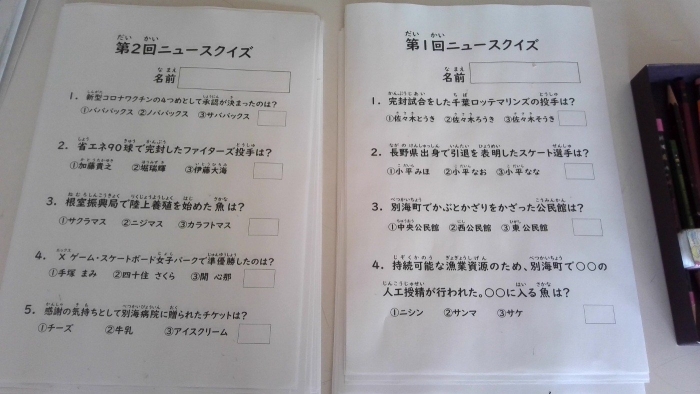 第2回ニュースクイズ
名前
1. 新型コロナワクチンの4つめとして承認が決まったのは?
①バババックス ②ノババックス ③サババックス
2. 省エネ90球で完封したファイターズ投手は?
①加藤貴之 ②堀瑞輝 ③伊藤大海
3. 根室振興局で陸上養殖を始めた魚は?
①サクラマス ②ニジマス ③カラフトマス
4. Xゲーム・スケートボード女子パークで準優勝したのは?
①手塚 まみ ②四十住 さくら ③開 心那
5. 感謝の気持ちとして別海病院に贈られたチケットは?
①チーズ ②牛乳 ③アイスクリーム
第1回ニュースクイズ
名前
1. 完封試合をした千葉ロッテマリンズの投手は?
①佐々木とうき ②佐々木ろうき ③佐々木そうき
2. 長野県出身で引退を表明したスケート選手は?
①小平みほ ②小平なお ③小平なな
3. 別海町でかぶとかざりをかざった公民館は?
①中央公民館 ②西公民館 ③東公民館
4. 持続可能な漁業資源のため、別海町で〇〇の
人工授精が行われた。〇〇に入る魚は?
①ニシン ②サンマ ③サケ